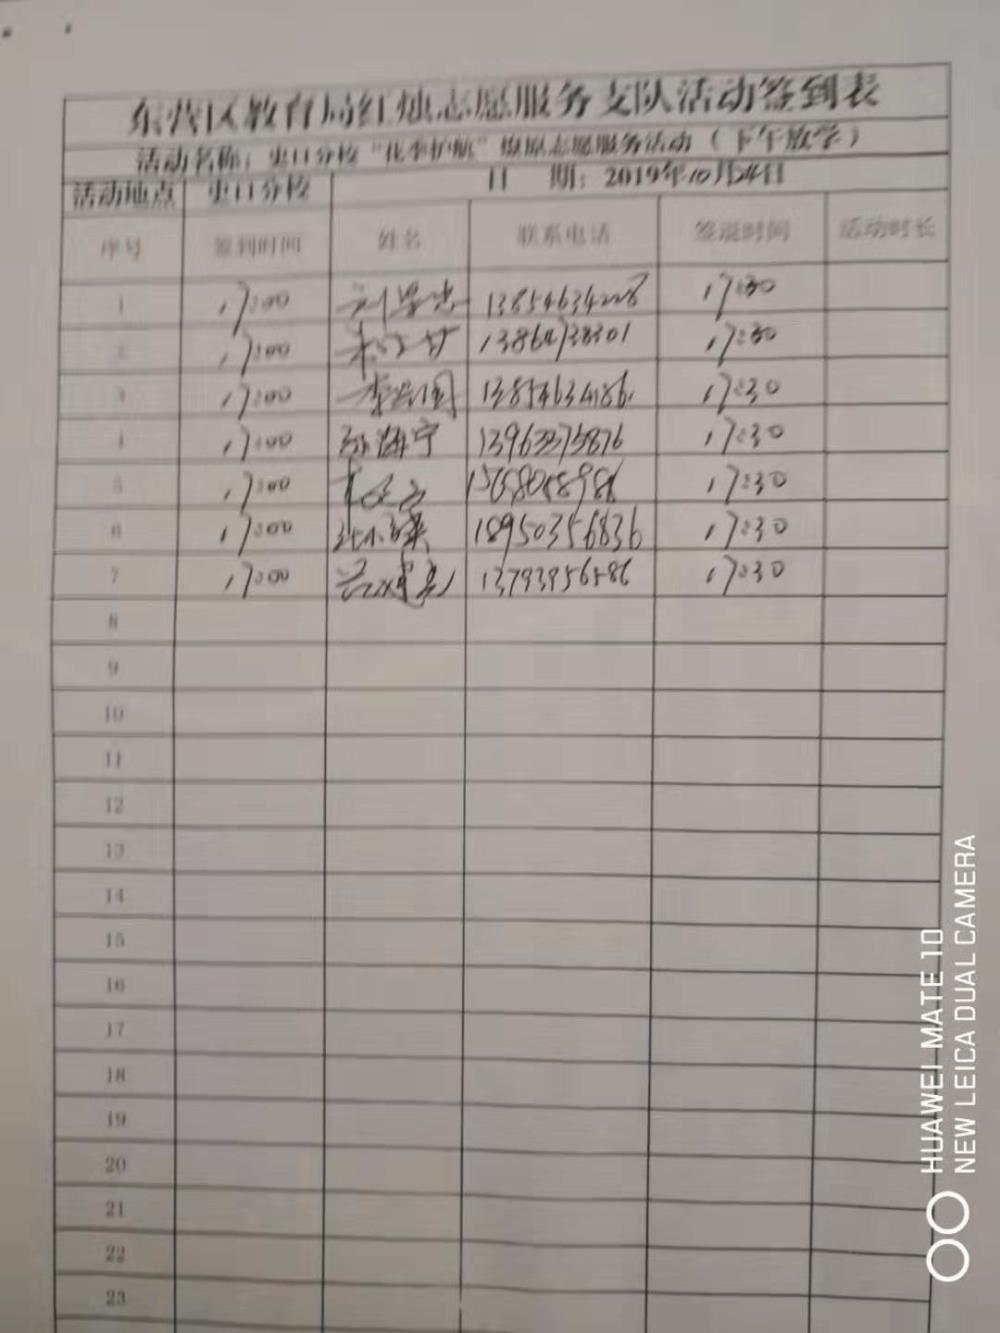 东营区教育局红烛志愿服务支队活动签到表
活动名称：史口分校“花季护航”燎原志愿服务活动（下午放学）
活动地点 史口分校 日 期：2019年10月24日
序号 签到时间 姓名 联系电话 签退时间 活动时长
1 17:00 13854634228 17:30
2 17:00 17:30
3 17:00 李兴国 13854634186 17:30
4 17:00 孙海宁 17:30
5 17:00 17:30
6 17:00 18950356836 17:30
7 17:00 13793956586 17:30
8
9
10
11
12
13
14
15
16
17
18
19
20
21
22
23
HUAWEI MATE 10
NEW LEICA DUAL CAMERA